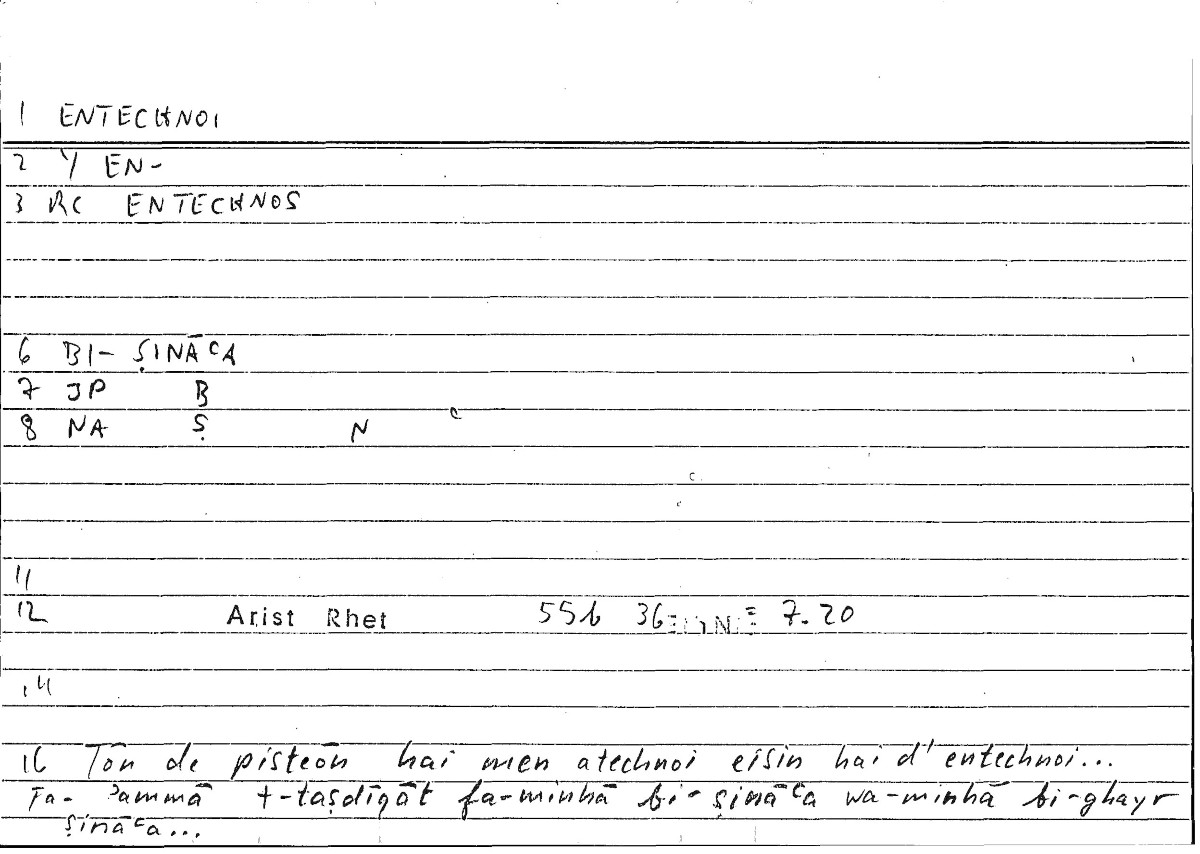 1 ENTECHNOI
2 Y EN-
3 RC ENTECHNOS
6 BI- ṢINĀʿA
7 JP B
8 NA Ṣ N ʿ
11
12 Arist Rhet 55b 36 7.20
14
16 Tōn de pisteōn hai men atechnoi eisin hai d' entechnoi...
Fa- ʾammā t-taṣdīqāt fa-minhā bi-ṣināʿa wa-minhā bi-ghayr
ṣināʿa...